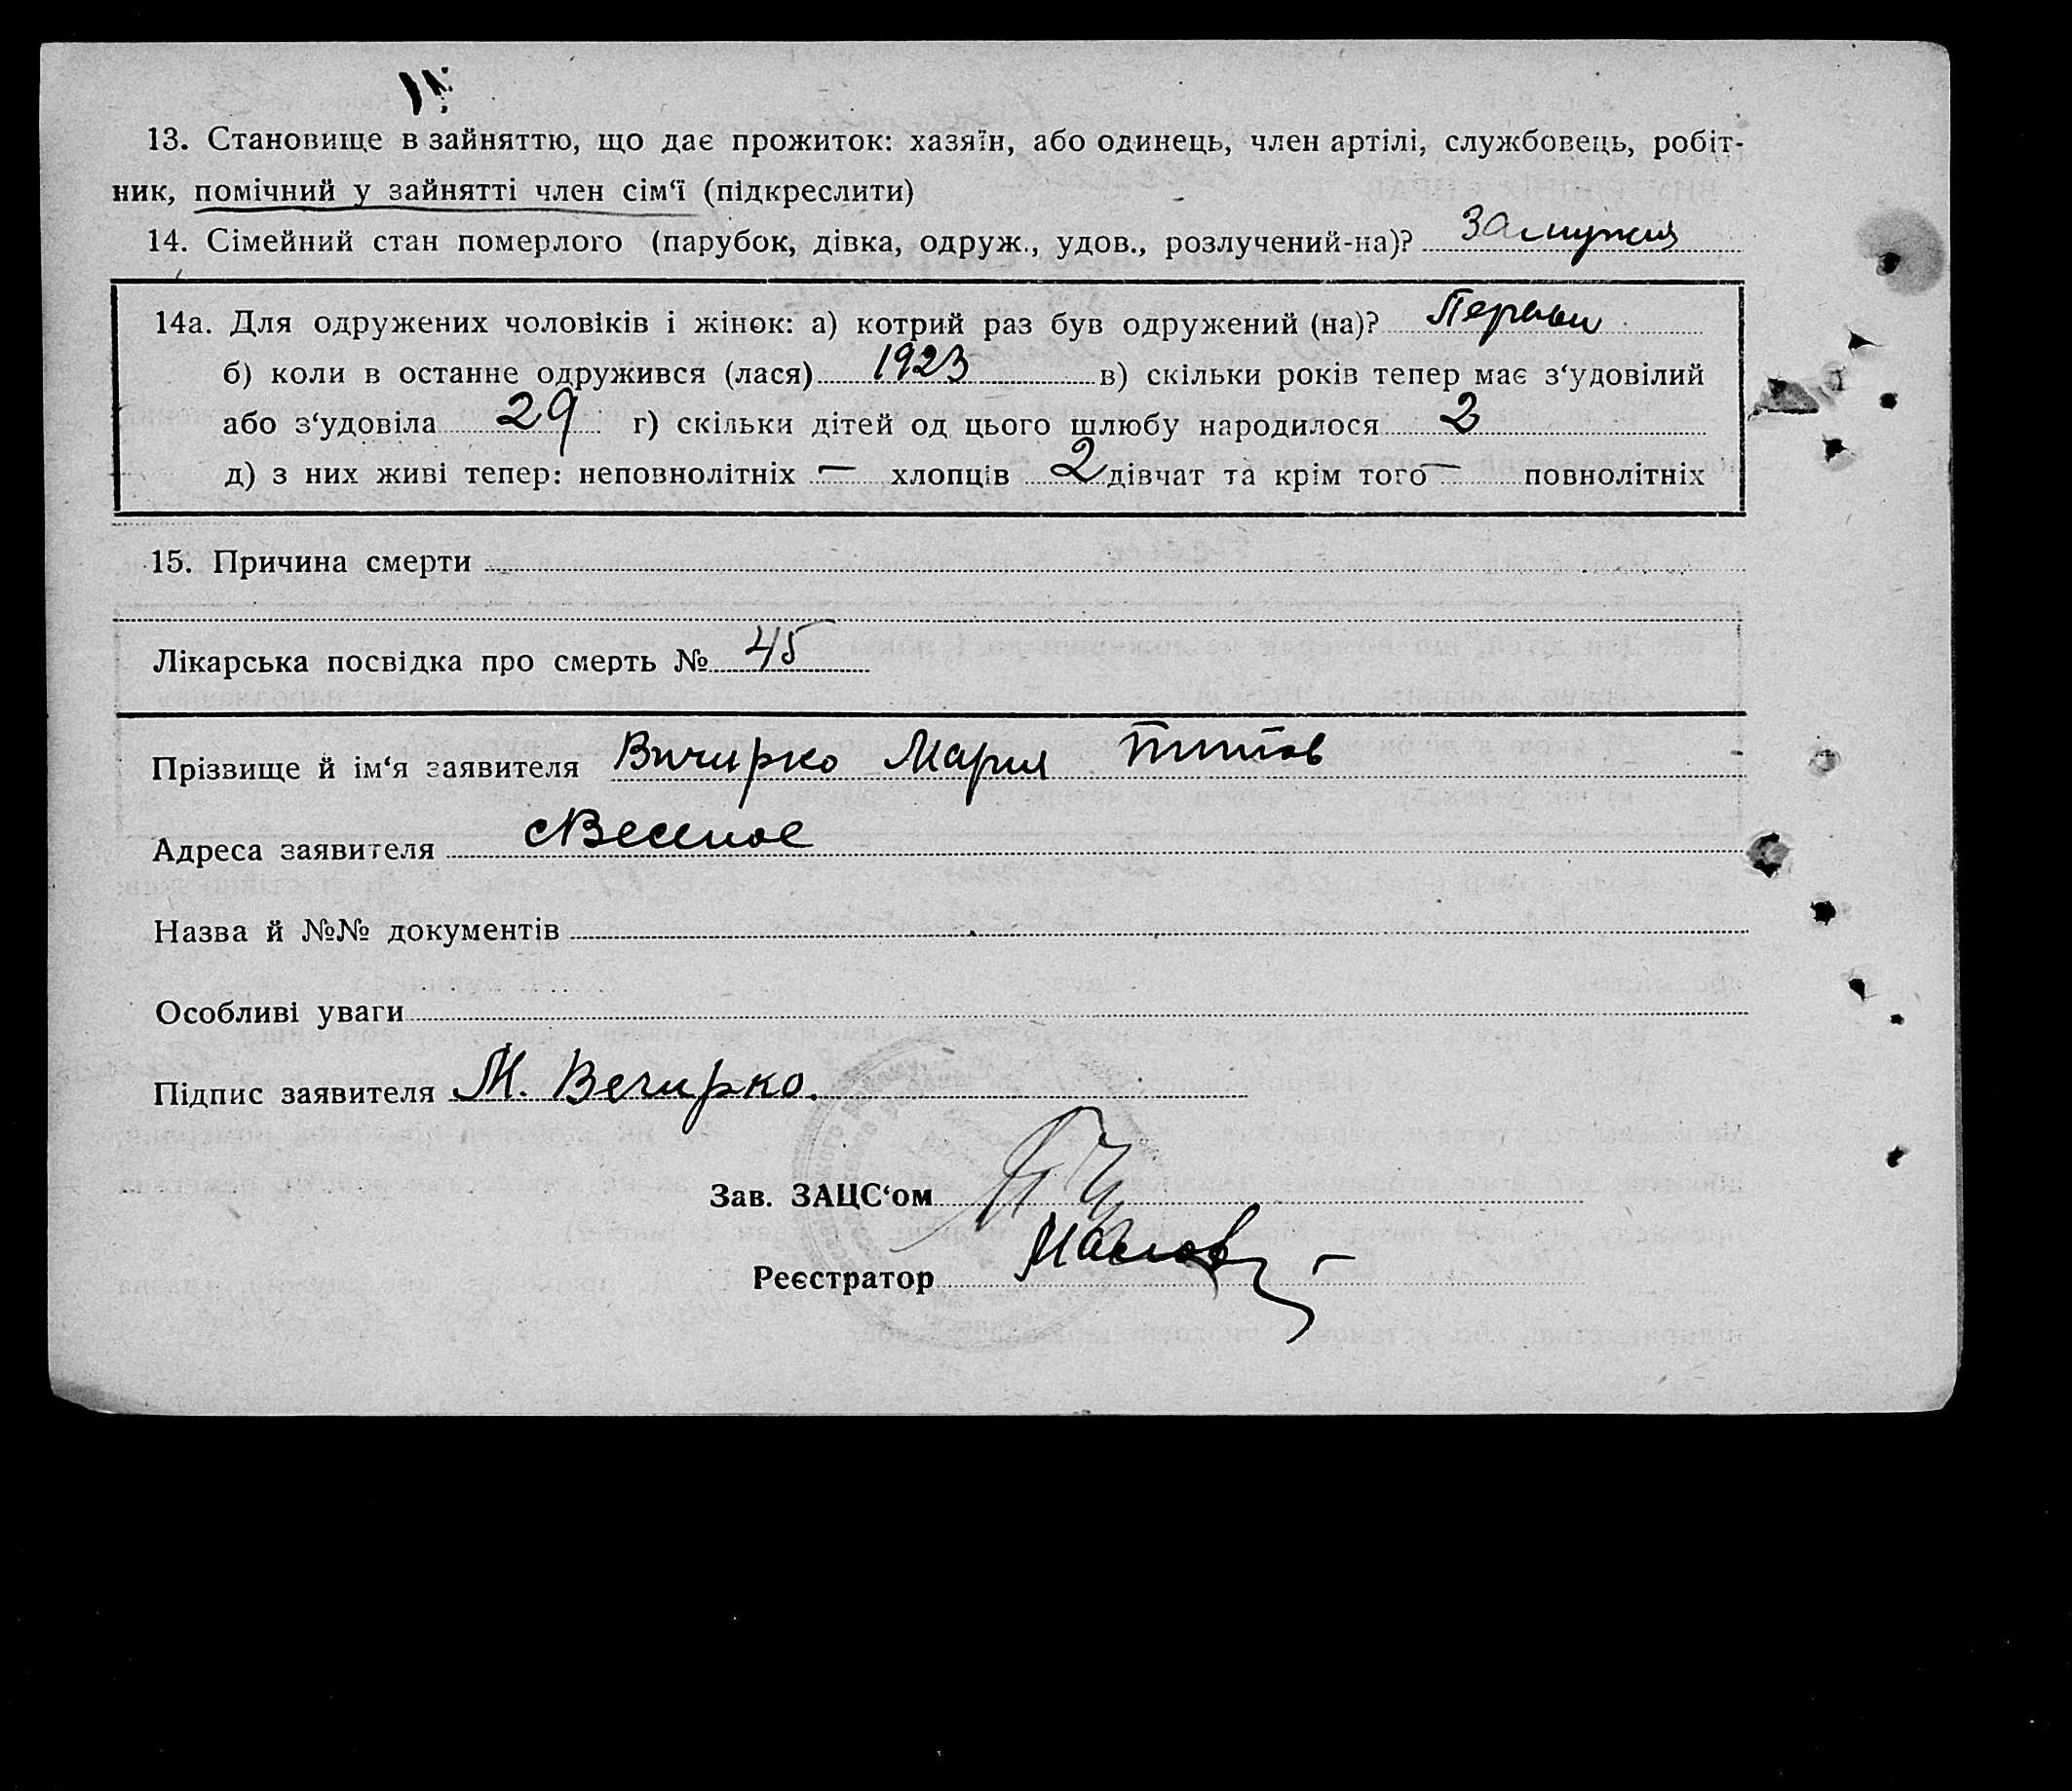 13. Становище в зайняттю, що дає прожиток: хазяїн, або одинець, член артілі, службовець, робіт-
ник, помічний у зайнятті член сім‘ї (підкреслити)
14. Сімейний стан померлого (парубок, дівка, одруж., удов., розлучений-на)? Замужня
14а. Для одружених чоловіків і жінок: а) котрий раз був одружений (на)? Первый
б) коли в останнє одружився (лася) 1923 в) скільки років тепер має з‘удовілий
або з‘удовіла 29 г) скільки дітей од цього шлюбу народилося 2
д) з них живі тепер: неповнолітніх — хлопців 2 дівчат та крім того — повнолітніх
15. Причина смерти
Лікарська посвідка про смерть № 45
Прізвище й ім‘я заявителя Вичирко Мария Титов
Адреса заявителя с Веселое
Назва й №№ документів
Особливі уваги
Підпис заявителя М. Вечирко.
Зав. ЗАЦС‘ом
Реєстратор